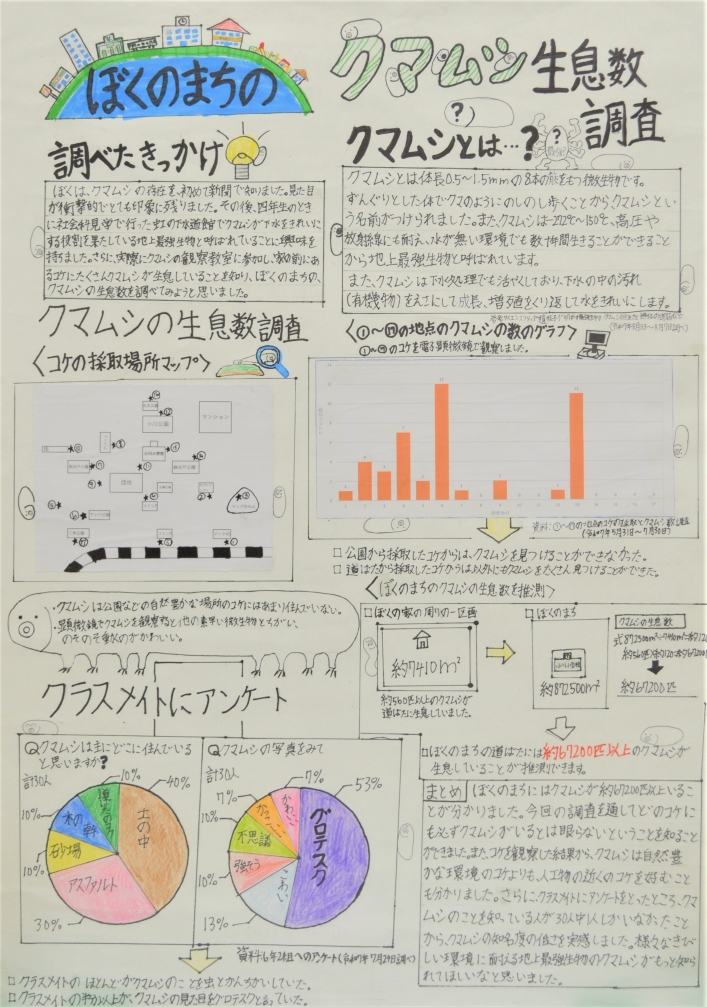 ぼくのまちの
クマムシ生息数
調査
調べたきっかけ
ぼくは、クマムシの存在を、初めて新聞で知りました。見た目
が衝撃的でとても印象に残りました。その後、四年生のとき
に社会科見学で行った虹の下水道館でクマムシが下水をきれいに
する役割を果たしている地上最強生物と呼ばれていることに興味を
持ちました。さらに、実際にクマムシの観察教室に参加し、家の前にあ
るコケにたくさんクマムシが生息していることを知り、ぼくのまちの、
クマムシの生息数を調べてみようと思いました。
クマムシとは…?
クマムシとは体長0.5~1.5mmの8本の足をもつ微生物です。
ずんぐりとした体でクマのようにのしのし歩くことからクマムシとい
う名前がつけられました。また、クマムシは
放射線にも耐え、水が無い環境でも数十時間生きることができること
から地上最強生物と呼ばれています。
また、クマムシは下水処理でも活やくしており、下水の中の汚れ
(有機物)をえさにして成長、増殖をくり返して水をきれいにします。
クマムシの生息数調査
〈コケの採取場所マップ〉
マンション
団地
〈①~⑰の地点のクマムシの数のグラフ〉
①~⑰のコケを電子顕微鏡で観察しました。
資料:①~⑰の地点のコケの採取とクマムシ数調査
(令和7年5月31日~7月30日)
□ 公園から採取したコケからは、クマムシを見つけることができなかった。
□ 道ばたから採取したコケからは以外にもクマムシをたくさん見つけることができた。
・クマムシは公園などの自然豊かな場所のコケにはあまり住んでいない。
・顕微鏡でクマムシを観察すると他の素早い微生物とちがい、
のそのそ動くのがかわいい。
〈ぼくのまちのクマムシの生息数を推測〉
□ぼくの家の周りの一区画
約7410m²
約560匹以上のクマムシが
道ばたに生息していました。
□ぼくのまち
約872500m²
クマムシの生息数
約67200匹
□ぼくのまちの道ばたには約67200匹以上のクマムシが
生息していることが推測できます。
クラスメイトにアンケート
Qクマムシは主にどこに住んでいる
と思いますか?
計30人
10%
40%
土の中
木の幹
10%
砂場
10%
アスファルト
30%
Qクマムシの写真をみて
計30人
7%
53%
グロテスク
かわいい
7%
不思議
10%
強そう
10%
こわい
13%
資料:6年2組へのアンケート(令和7年7月29日調べ)
□ クラスメイトのほとんどがクマムシのことを虫とかんちがいしていた。
□ クラスメイトの半分以上が、クマムシの見た目をグロテスクと言っていた。
まとめ ぼくのまちにはクマムシが約67200匹以上いるこ
とが分かりました。今回の調査を通してどのコケに
も必ずクマムシがいるとは限らないということを知ること
ができました。またコケを観察した結果から、クマムシは自然豊
かな環境のコケよりも、人工物の近くのコケを好むこと
も分かりました。さらに、クラスメイトにアンケートをとったところ、クマ
ムシのことを知っている人が30人中1人しかいなかったこと
から、クマムシの知名度の低さを実感しました。様々なきび
しい環境に耐える地上最強生物のクマムシがもっと知ら
れてほしいなと思いました。